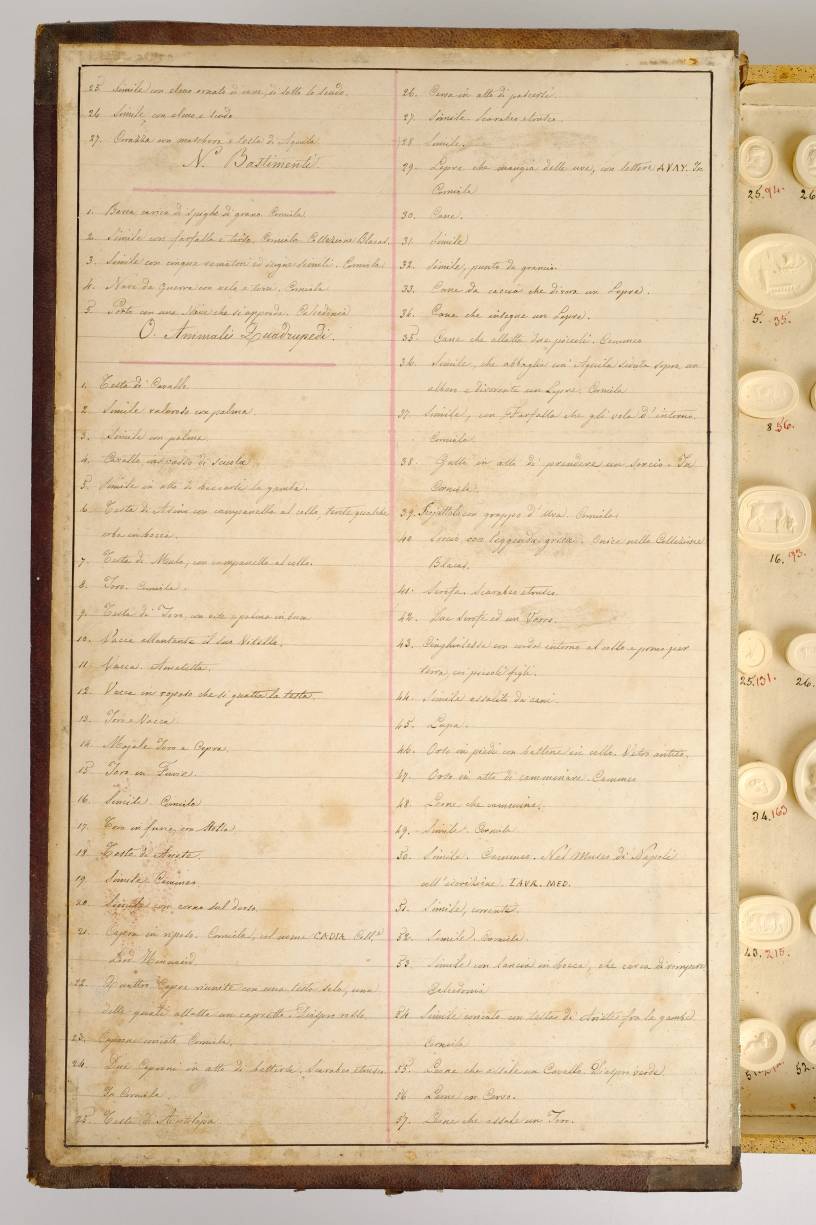 25 Simile con elmo ornato di cane, di sotto lo scudo.
26 Simile con elmo e scudo
27. Corazza con maschera e testa di Aquila
N.º Bastimenti
1. Barca carica di spighe di grano Corniola
2. Simile con farfalla e Corniola Collezione Blacas.
3. Simile con cinque rematori ed insigne simili. Corniola
4. Nave da Guerra con vele e torre. Corniola
5 Porto con una Nave che si approda. Calcedonia
O Animali Quadrupedi.
1. Testa di Cavallo
2 Simile valoroso con palma.
3. Simile con palma
4. Cavallo in passo di scuola
5. Simile in atto di beccarsi la gamba.
6 Testa di Asino con campanello al collo, tenete qualche
erba in bocca.
7. Testa di Mulo, con campanello al collo.
8. Toro. Corniola.
9. Testa di Toro, con vite e palma in bocca
10. Vacca allattante il suo Vitello.
11 Vacca. Ametista.
12 Vacca in riposo che si gratta la testa.
13. Toro e Vacca
14. Majale Toro e Capra.
15 Toro in Furia.
16. Simile. Corniola
17. Toro in furia, con Stella
18 Testa di Ariete.
19 Simile Cammeo
20 Simile con corno sul dorso.
21. Capra in riposo. Corniola, col nome CADIA Coll.ᵉ
Lord
22. Quattro Capre riunite con una testa sola, una
delle quali allatta un capretto. Diaspro rosso
23. Caprone Corniola.
24. Due Caproni in atto di battersi. Scarabeo etrusco
In Corniola.
25 Testa di Antilopa
26. Cerva in atto di pascersi.
27. Simile. Scarabeo etrusco.
28 Simile.
29. Lepre che mangia delle uve, con lettere In
Corniola
30. Cane.
31. Simile
32. Simile, punto da grancio.
33. Cane da caccia che divora un Lepre.
34. Cane che insegue un Lepre.
35. Cane che allatta due piccoli. Cammeo
36. Simile, che abbaglia un' Aquila situata sopra un
albero e divorante un Lepre. Corniola
37 Simile, con Farfalla che gli vola d' intorno.
Corniola
38. Gatto in atto di prendere un Sorcio. In
Corniola.
39. con grappo d' Uva. Corniola
40. Sorcio con leggenda greca. Onice nella Collezione
Blacas.
41. Scrofa. Scarabeo etrusco.
42. Due Scrofe ed un Verro.
43. Cinghialessa con corda intorno al collo e pomo per
terra, coi piccoli figli.
44. Simile assalito da cani
45. Lupa.
46. Orso in piedi con bastone in collo. Vetro antico.
47. Orso in atto di camminare. Cammeo
48. Leone che cammina.
49. Simile. Corniola
50. Simile. Cammeo. Nel Museo di Napoli
coll' iscrizione LAUR. MED.
51. Simile, corrente.
52. Simile. Corniola.
53. Simile con lancia in bocca, che cerca di rompere
Calcedonia
54. Simile coricato con testa di Ariete fra le gambe
Corniola
55. Leone che assale un Cavallo. Diaspro verde.
56 Leone con Cervo.
57. Leone che assale un Toro.
25. 94.
26.
5. 35.
8 56.
16. 73.
25. 131.
26.
34. 163
43. 215.
51.
52.